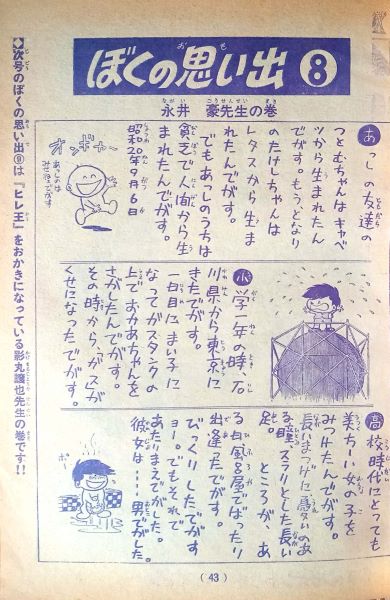 ぼくの思い出⑧
永井 豪先生の巻
あっしの友達の
つとむちゃんはキャベ
ツから生まれたん
でがす。もうひとり
のたけしちゃんは
レタスから生ま
れたんでがす。
でもあっしのうちは
貧乏で人間から生
まれたんでがす。
昭和20年9月6日
オンギャー
あっしのは
みせねでがす
小学一年の時、石
川県から東京に
きたでがす。
一日目にまい子に
なってガスタンクの
上でおかあちゃんを
さがしたんでがす。
その時から、ガスが
くせになったでがす。
高校時代にとっても
美ちーい女の子を
みつけたんでがす。
長いまつげに憂いのあ
る瞳。スラリとした長い
足。ところが、あ
る日風呂屋でばったり
出逢ったでがす。
びっくりしたでがす
ョー。でもそれで
あたりまえでがした。
彼女は……男でがした。
ポー
【次号のぼくの思い出⑨は『ヒレ王』をおかきになっている影丸譲也先生の巻です!!
(43)